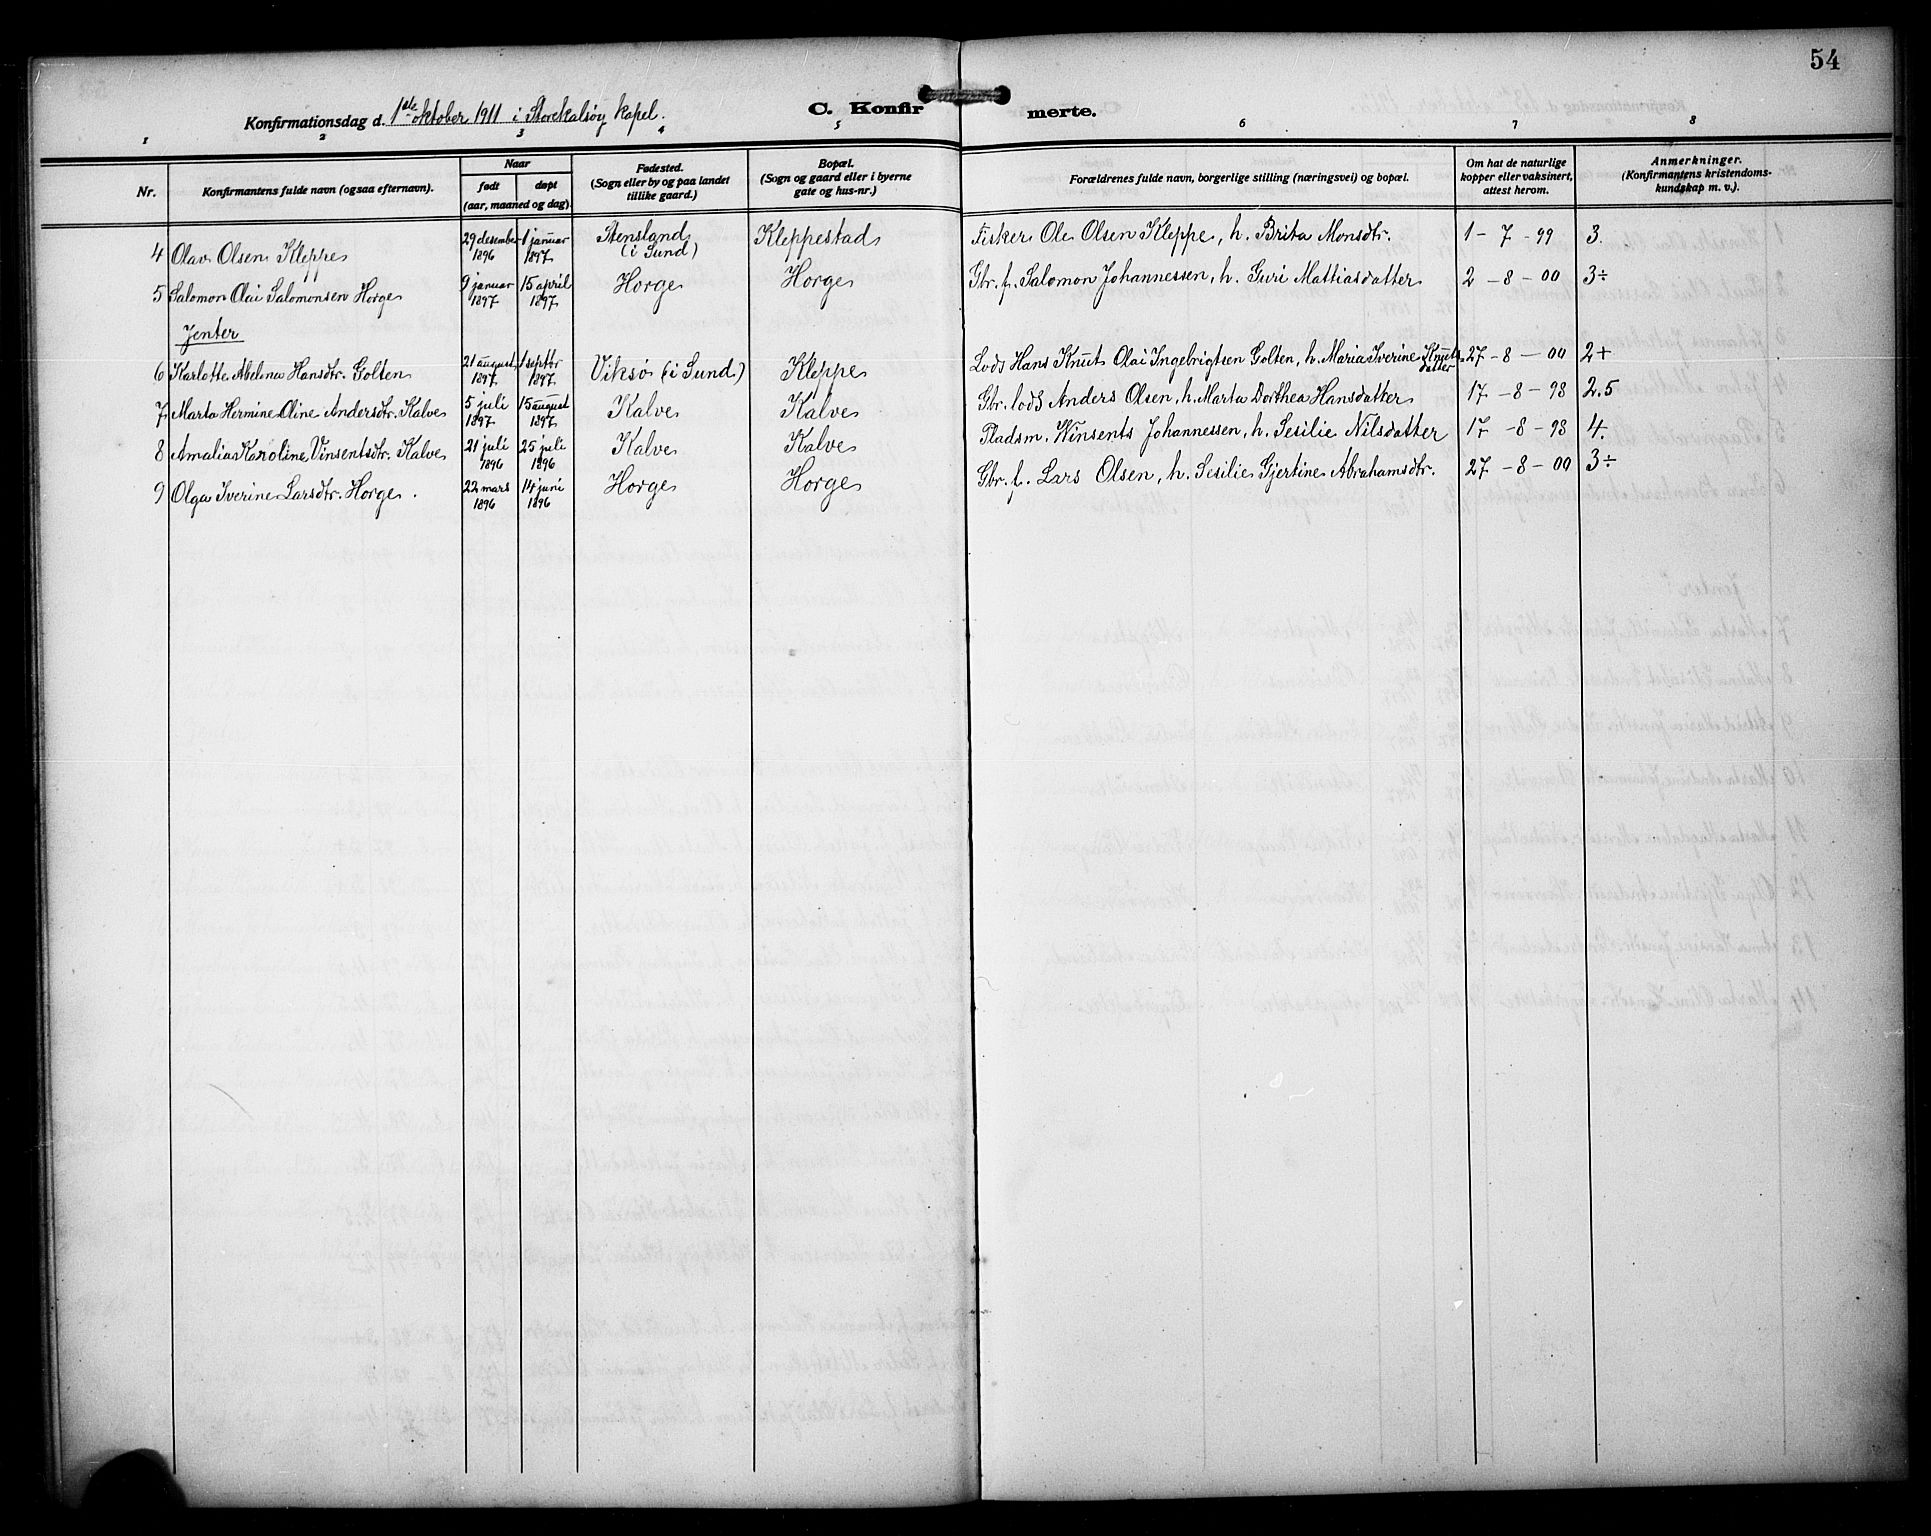 54
Konfirmationsdag d. 1ste oktober 1911 i Storekalsøy kapel.
C. Konfirmerte.
1 2 3 4 5 6 7 8
Nr.
Konfirmantens fulde navn (ogsaa efternavn).
Naar
født
døpt
(aar, maaned og dag).
Fødested.
(Sogn eller by og paa landet
tillike gaard.)
Bopæl.
(Sogn og gaard eller i byerne
gate og hus-nr.)
Forældrenes fulde navn, borgerlige stilling (næringsvei) og bopæl.
Om hat de naturlige
kopper eller vaksinert,
attest herom.
Anmerkninger.
(Konfirmantens kristendoms-
kundskap m. v.).
4 Olav Olsen Kleppe 29 desember 1896 1 januar 1897. Stensland (i Sund) Kleppestad Fisker Ole Olsen Kleppe, h. Brita Monsdtr. 1 - 7 - 99 3.
5 Salomon Olai Salomonsen Horge 9 januar 1897 15 april 1897. Horge Horge Gbr. f. Salomon Johannessen, h. Guri Mattiasdatter 2 - 8 - 00 3÷
Jenter
6 Karlotte Abelona Hansdtr. Golten 21 august 1897. 1 septbr 1897. Viksø (i Sund) Kleppe Lods Hans Knut Olai Ingebrigtsen Golten, h. Maria Iverine Knutsdatter 27 - 8 - 00 2+
7 Marta Hermine Oline Andersdtr. Kalve 5 juli 1897. 15 august 1897. Kalve Kalve Gbr. lods Anders Olsen, h. Marta Dorthea Hansdatter 17 - 8 - 98 2.5
8 Amalia Karoline Vinsentsdtr. Kalve 21 juli 1896 25 juli 1896 Kalve Kalve Pladsm. Winsents Johannessen, h. Sesilie Nilsdatter 17 - 8 - 98 4.
9 Olga Iverine Larsdtr. Horge. 22 mars 1896 14 juni 1896 Horge Horge Gbr. f. Lars Olsen, h. Sesilie Gjertine Abrahamsdtr. 27 - 8 - 00 3÷